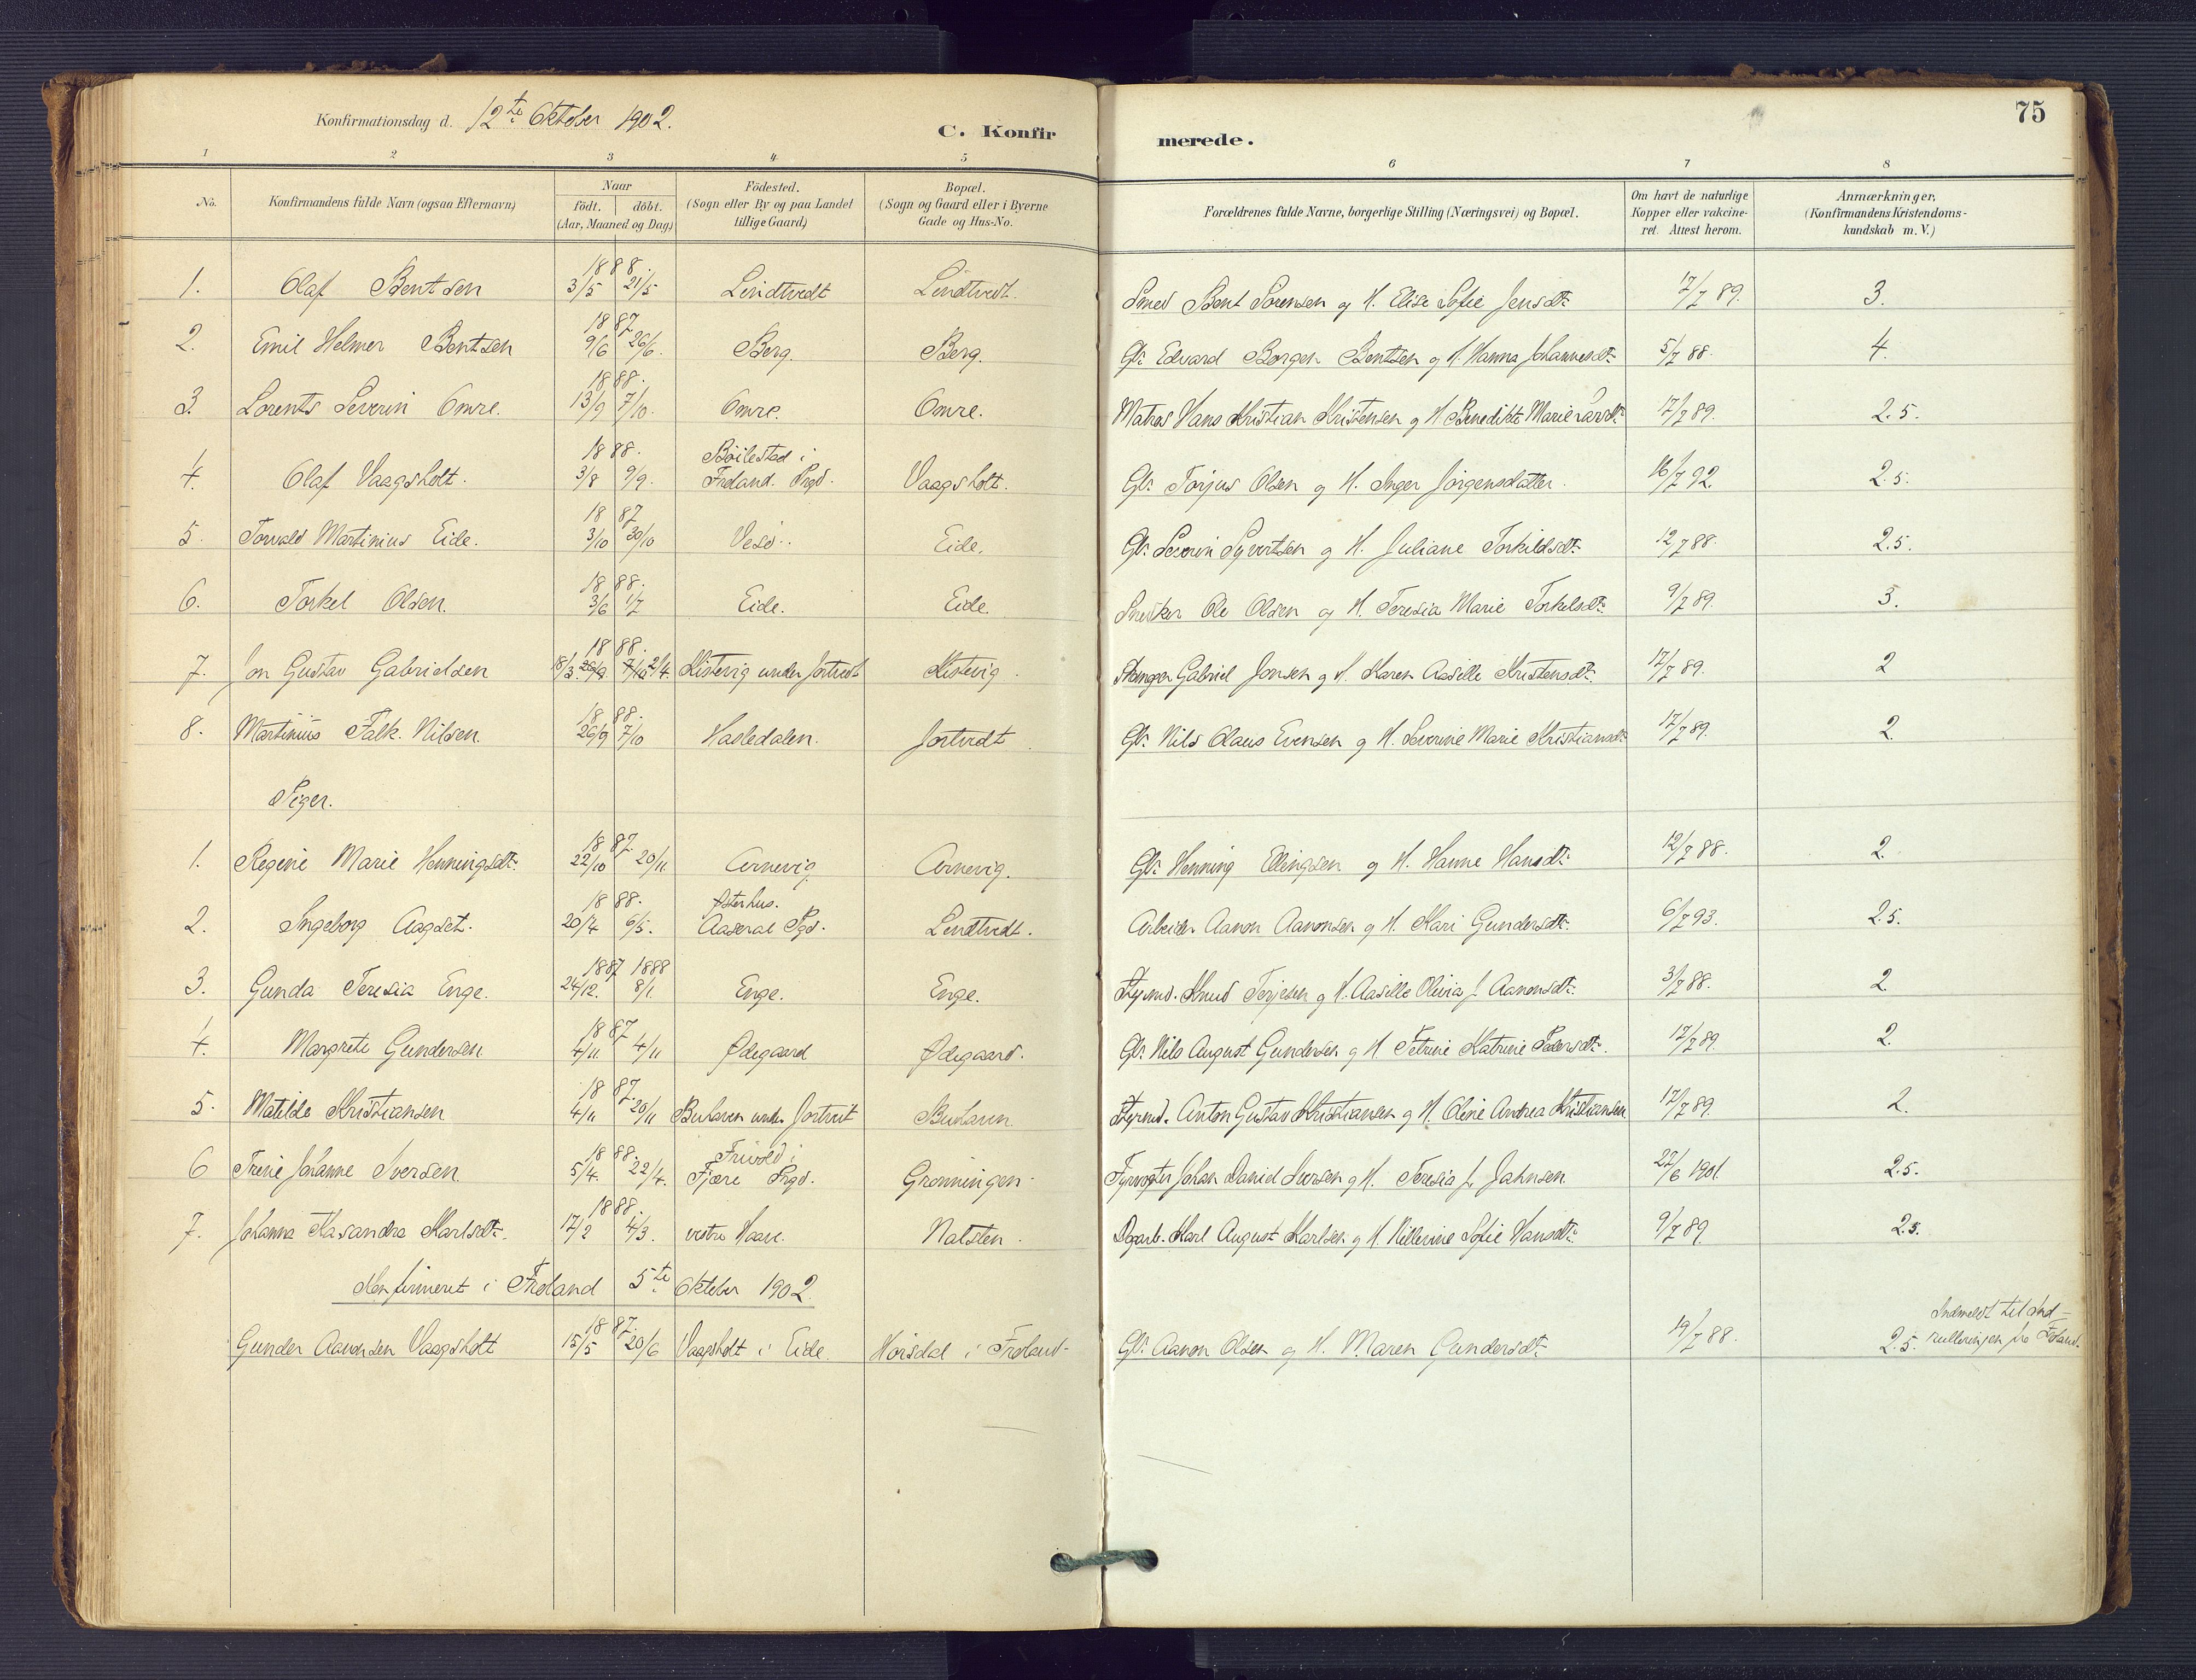 75
Konfirmationsdag d. 12te Oktober 1902.
C. Konfirmerede.
1 2 3 4 5 6 7 8
No.
Konfirmandens fulde Navn (ogsaa Efternavn)
Naar
födt. döbt.
(Aar, Maaned og Dag)
Födested.
(Sogn eller By og paa Landet
tillige Gaard)
Bopæl.
(Sogn og Gaard eller i Byerne
Gade og Hus-No.
Forældrenes fulde Navne, borgerlige Stilling (Næringsvei) og Bopæl.
Om havt de naturlige
Kopper eller vakcine-
ret. Attest herom.
Anmærkninger,
(Konfirmandens Kristendoms-
kundskab m. V.)
1888.
1. Olaf Bentsen 3/5 21/5 Lindtvedt Lindtvedt. Smed Bent Sørensen og H. Elise Sofie Jensdtr 17/7 89. 3.
1887
2. Emil Helmer Bentsen 9/6 26/6. Berg. Berg. Gbr Edvard Børgen Bentsen og H. Hanna Johannesdtr 5/7 88. 4.
1888.
3. Lorents Severin Omre. 13/9 7/10. Omre. Omre. Matros Hans Kristian Kristensen og H Benedikte Marie 17/7 89. 2.5.
1888. Böilestad i
4. Olaf Vaagsholt. 3/8 9/9. Froland. Prgd. Vaagsholt. Gbr Törjus Olsen og H. Inger Jörgensdatter. 16/7 92. 2.5.
1887
5. Torvald Martinius Eide. 3/10 30/10 Vesö. Eide. Gbr Severin Syvertsen og H. Juliane Torkildsdtr 12/7 88. 2.5.
1888.
6. Torkel Olsen. 3/6 1/7 Eide. Eide. Snedker Ole Olsen og H. Teresia Marie Torkelsdtr 9/7 89. 3.
1888.
7. Jon Gustav Gabrielsen 18/3. 26/9 7/10 2/4. Kistevig under Jortvedt Kistevig. Gabriel Jonsen og H. Karen Aasille Kristensdtr. 17/7 89. 2
1888.
8. Martinius Falk. Nilsen. 26/9 7/10 Hasledalen. Jortvedt Gbr Nils Olaus Evensen og H. Severine Marie Kristiansdtr 17/7 89. 2.
Piger.
1887.
1. Regine Marie Henningsdtr. 22/10 20/11. Arnevig Arnevig. Gbr Henning Ellingsen og H. Hanne Hansdtr 12/7 88. 2.
1888. Østerhus.
2. Ingeborg Aagset. 20/4 6/5. Aaseral Pgd. Lindtvedt. Arbeider Aanon Aanonsen og H. Kari Gundersdtr. 6/7 93. 2.5.
1887 1888
3. Gunda Teresia Enge. 24/12. 8/1. Enge. Enge. Styrmd. Knud Terjesen og H. Aasille Olivia f. Aanonsdtr. 3/7 88. 2.
1887
4. Margrete Gundersen 4/11 4/11 Ødegaard Ødegaard. Gbr Nils August Gundersen og H. Petrine Katrine Pedersdtr. 17/7 89. 2.
1887.
5. Matilde Kristiansen 4/11 20/11 Buhaven under Jortveit Buhavn. Styrmd. Anton Gustav Kristiansen og H. Oline Andrea Kristiansen 17/7 89. 2.
1888. Frivold i
6 Trine Johanne Iversen. 5/4. 22/4. Fjære Prgd. Grønningen. Fyrvogter Johan Daniel Iversen og H. Teresia f. Jahnsen. 22/6 1901. 2.5.
1888.
7. Johanna Kasandra Karlsdtr. 17/2 4/3. vestre Haave. Natsten. Dagarb. Karl August Karlsen og H. Nillevine Sofie Hansdtr. 9/7 89. 2.5.
Konfirmeret i Froland 5te Oktober 1902.
1887. Indmeldt til Ind-
Gunder Aanonsen Vaagsholt 15/5 20/6 Vaagsholt i Eide. Hörsdal i Froland. Gbr. Aanon Olsen og H. Maren Gundersdtr 19/7 88. 2.5. rulleringen fra Froland.